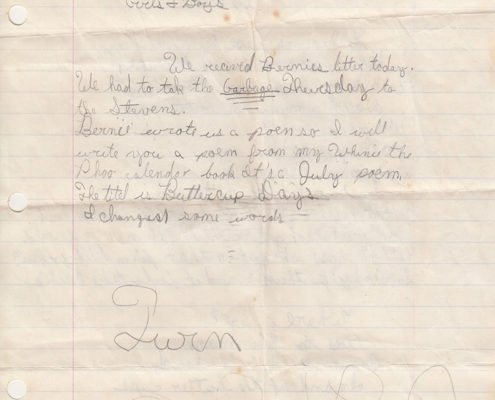 Girls & Boys
We recived Bernies litter today.
We had to take the Garbage Thursday to
the Stevens.
Bernii wrote us a poem so I will
write you a poem from my Whinie the
Phoo calender book It sa July poem.
The titel is Buttercup Days
I changest some words
Turn